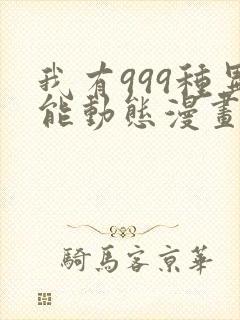 我有999種異
能動態漫畫
騎馬客京華